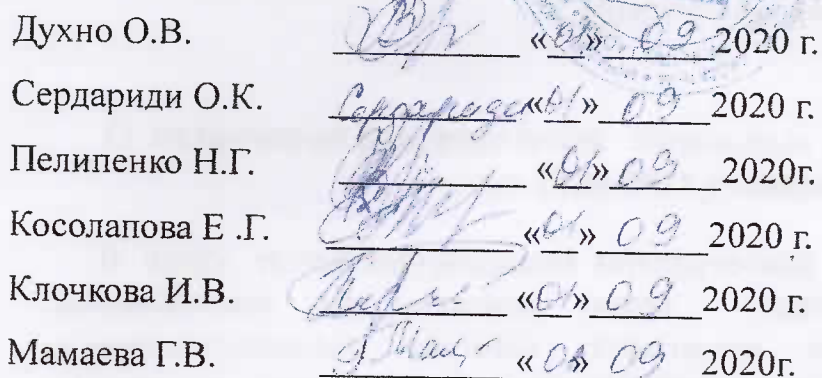 Духно О.В. «01» 09 2020 г.
Сердариди О.К. Сердариди «01» 09 2020 г.
Пелипенко Н.Г. «01» 09 2020г.
Косолапова Е .Г. «01» 09 2020 г.
Клочкова И.В. «01» 09 2020 г.
Мамаева Г.В. «01» 09 2020г.